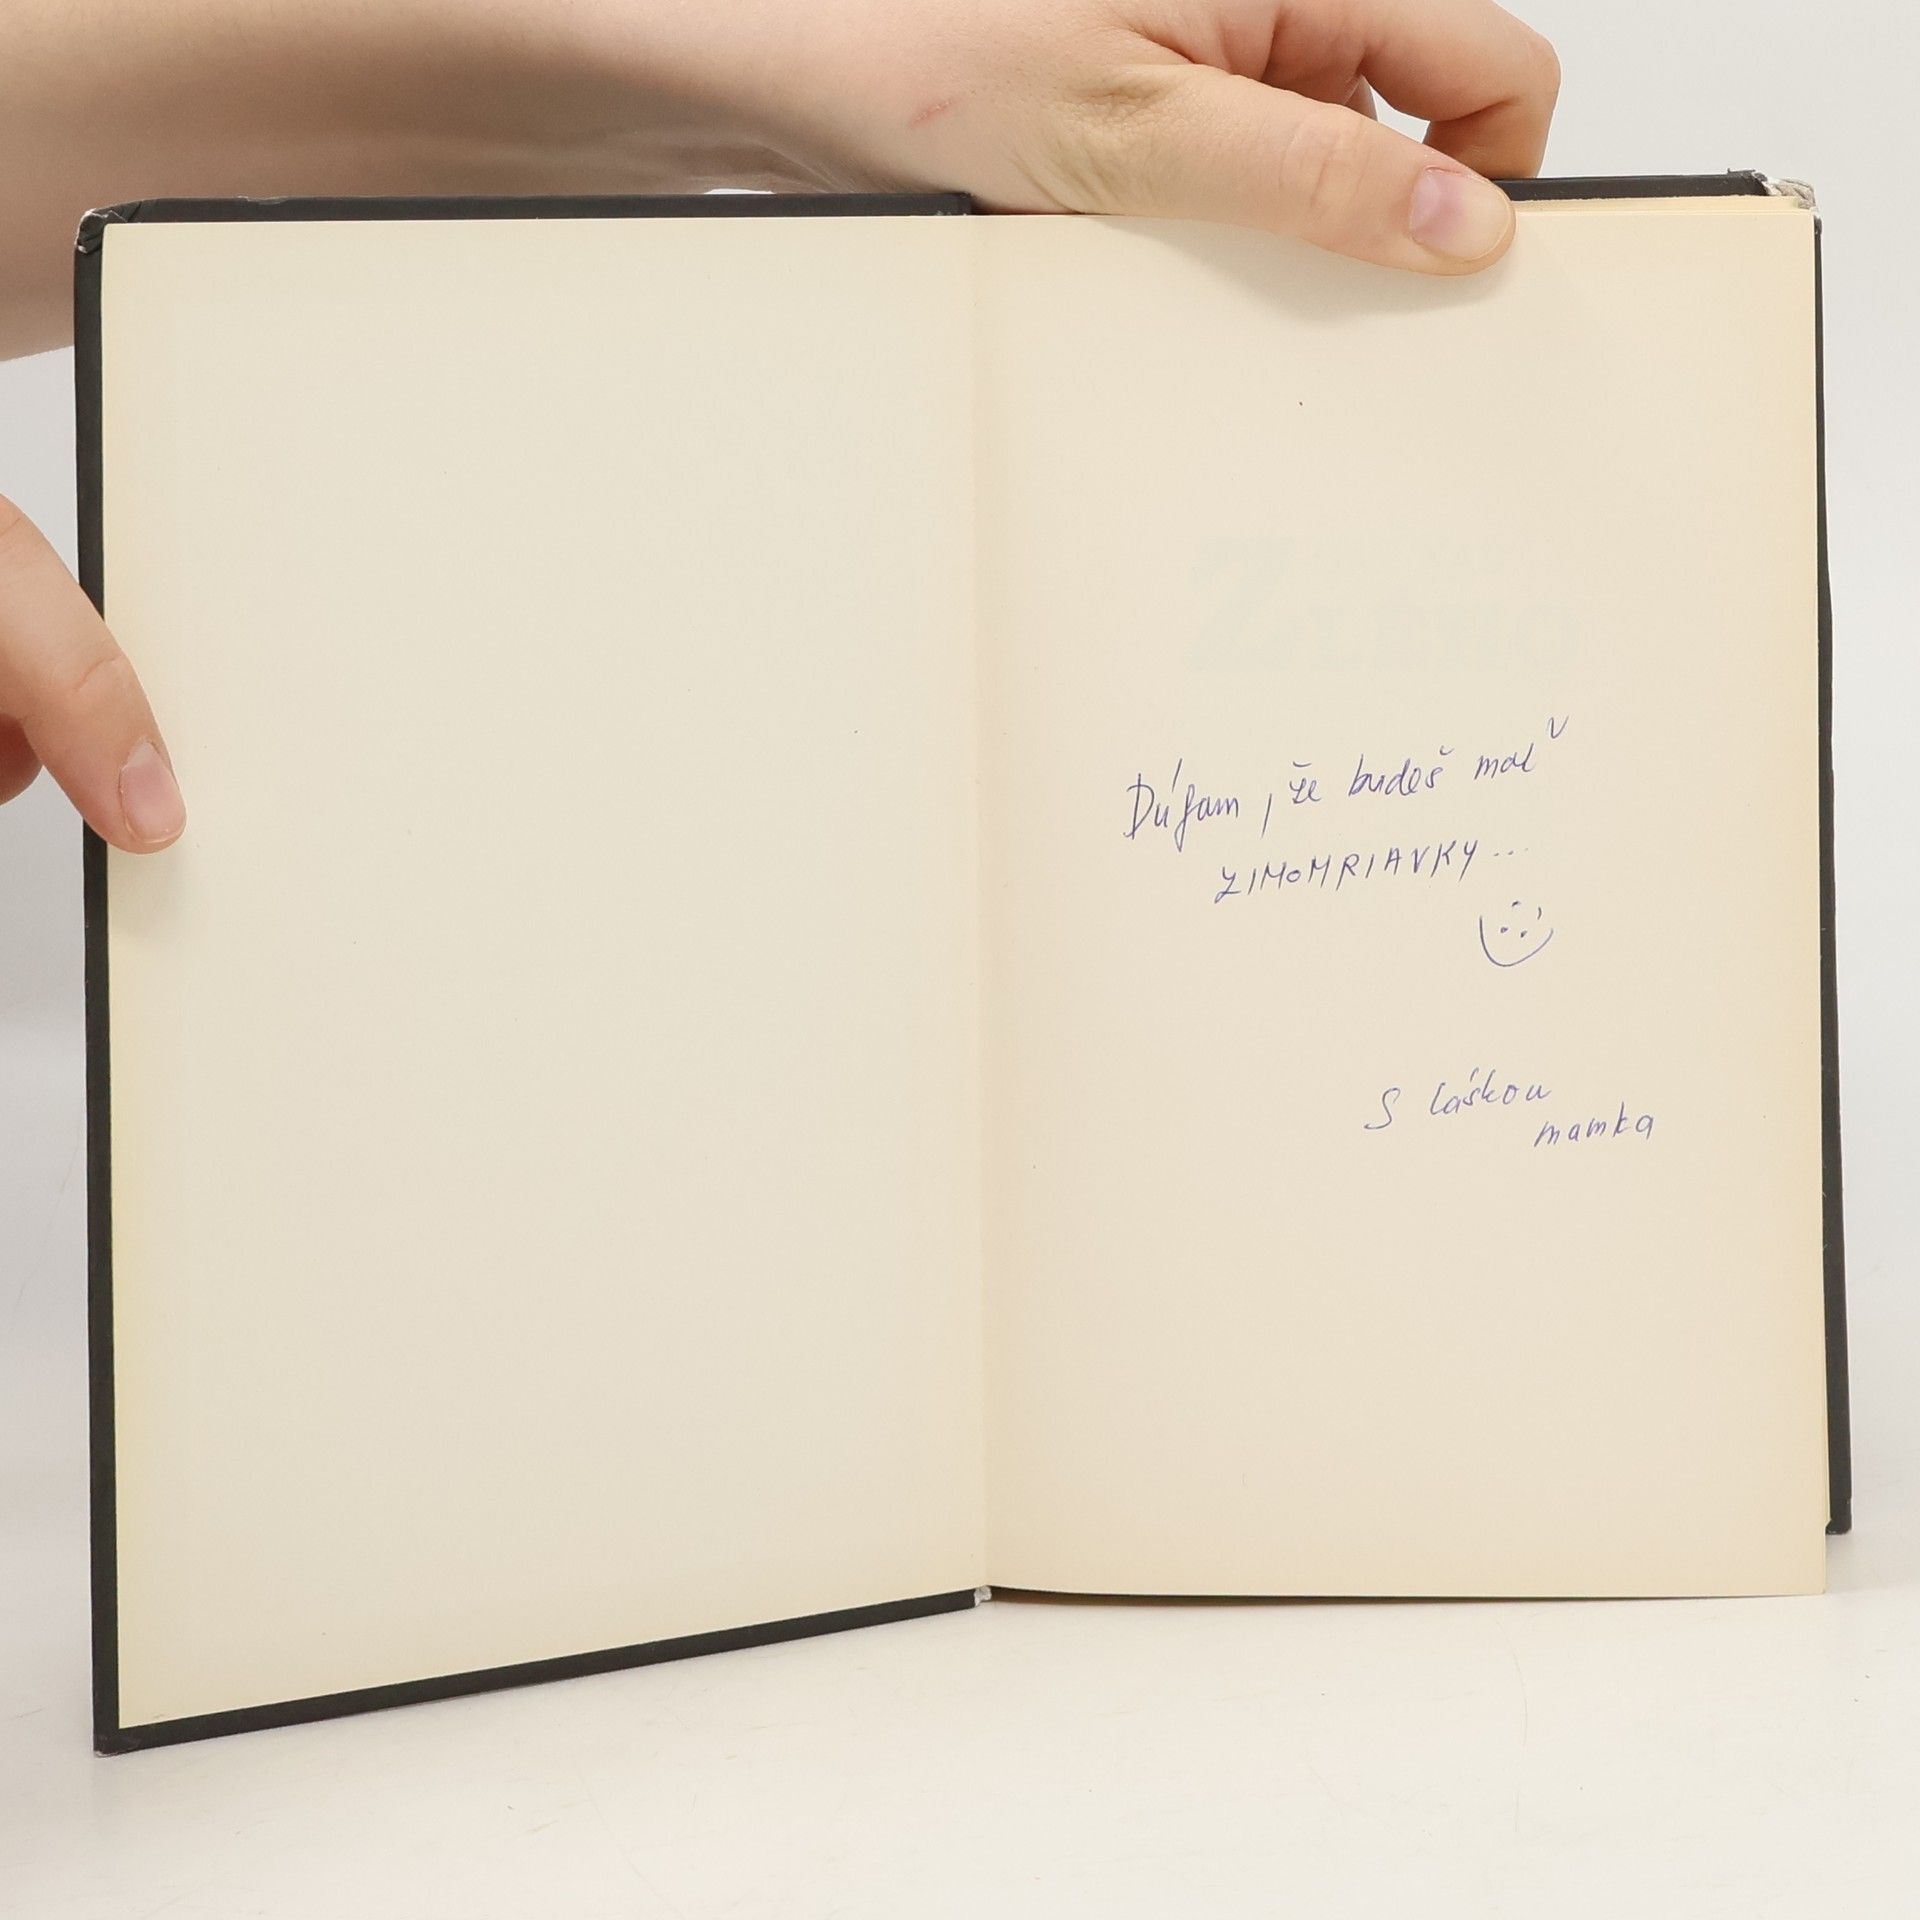 Dúfam, že budeš mať
ZIMOMRIAVKY...
S láskou
mamka